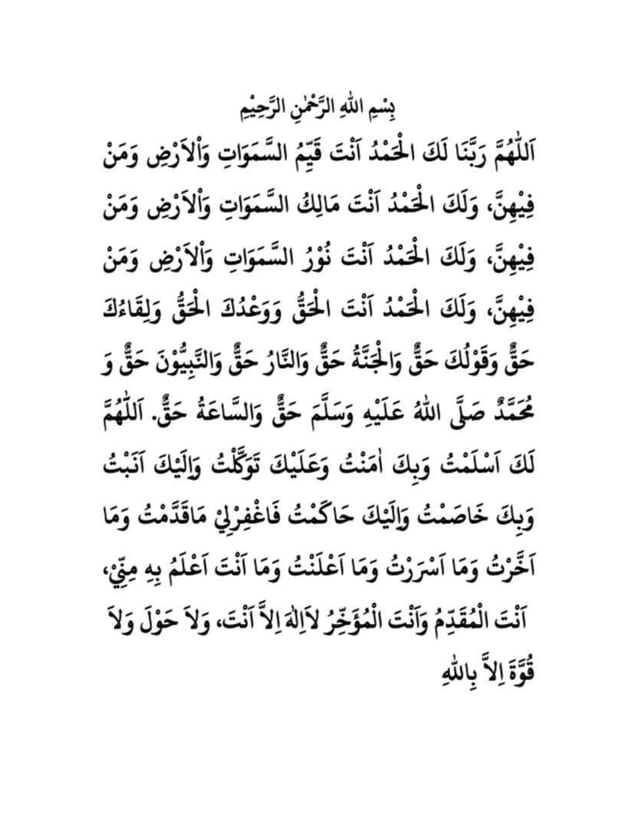 بِسْمِ اللهِ الرَّحْمٰنِ الرَّحِيْمِ
اَللّٰهُمَّ رَبَّنَا لَكَ الْحَمْدُ اَنْتَ قَيِّمُ السَّمَوَاتِ وَاْلاَرْضِ وَمَنْ
فِيْهِنَّ، وَلَكَ الْحَمْدُ اَنْتَ مَالِكُ السَّمَوَاتِ وَاْلاَرْضِ وَمَنْ
فِيْهِنَّ، وَلَكَ الْحَمْدُ اَنْتَ نُوْرُ السَّمَوَاتِ وَاْلاَرْضِ وَمَنْ
فِيْهِنَّ، وَلَكَ الْحَمْدُ اَنْتَ الْحَقُّ وَوَعْدُكَ الْحَقُّ وَلِقَاءُكَ
حَقٌّ وَقَوْلُكَ حَقٌّ وَالْجَنَّةُ حَقٌّ وَالنَّارُ حَقٌّ وَالنَّبِيُّوْنَ حَقٌّ وَ
مُحَمَّدٌ صَلَّى اللهُ عَلَيْهِ وَسَلَّمَ حَقٌّ وَالسَّاعَةُ حَقٌّ. اَللّٰهُمَّ
لَكَ اَسْلَمْتُ وَبِكَ اٰمَنْتُ وَعَلَيْكَ تَوَكَّلْتُ وَاِلَيْكَ اَنَبْتُ
وَبِكَ خَاصَمْتُ وَاِلَيْكَ حَاكَمْتُ فَاغْفِرْلِيْ مَاقَدَّمْتُ وَمَا
اَخَّرْتُ وَمَا اَسْرَرْتُ وَمَا اَعْلَنْتُ وَمَا اَنْتَ اَعْلَمُ بِهِ مِنِّيْ،
اَنْتَ الْمُقَدِّمُ وَاَنْتَ الْمُؤَخِّرُ لاَاِلٰهَ اِلاَّ اَنْتَ، وَلاَ حَوْلَ وَلاَ
قُوَّةَ اِلاَّ بِاللهِ